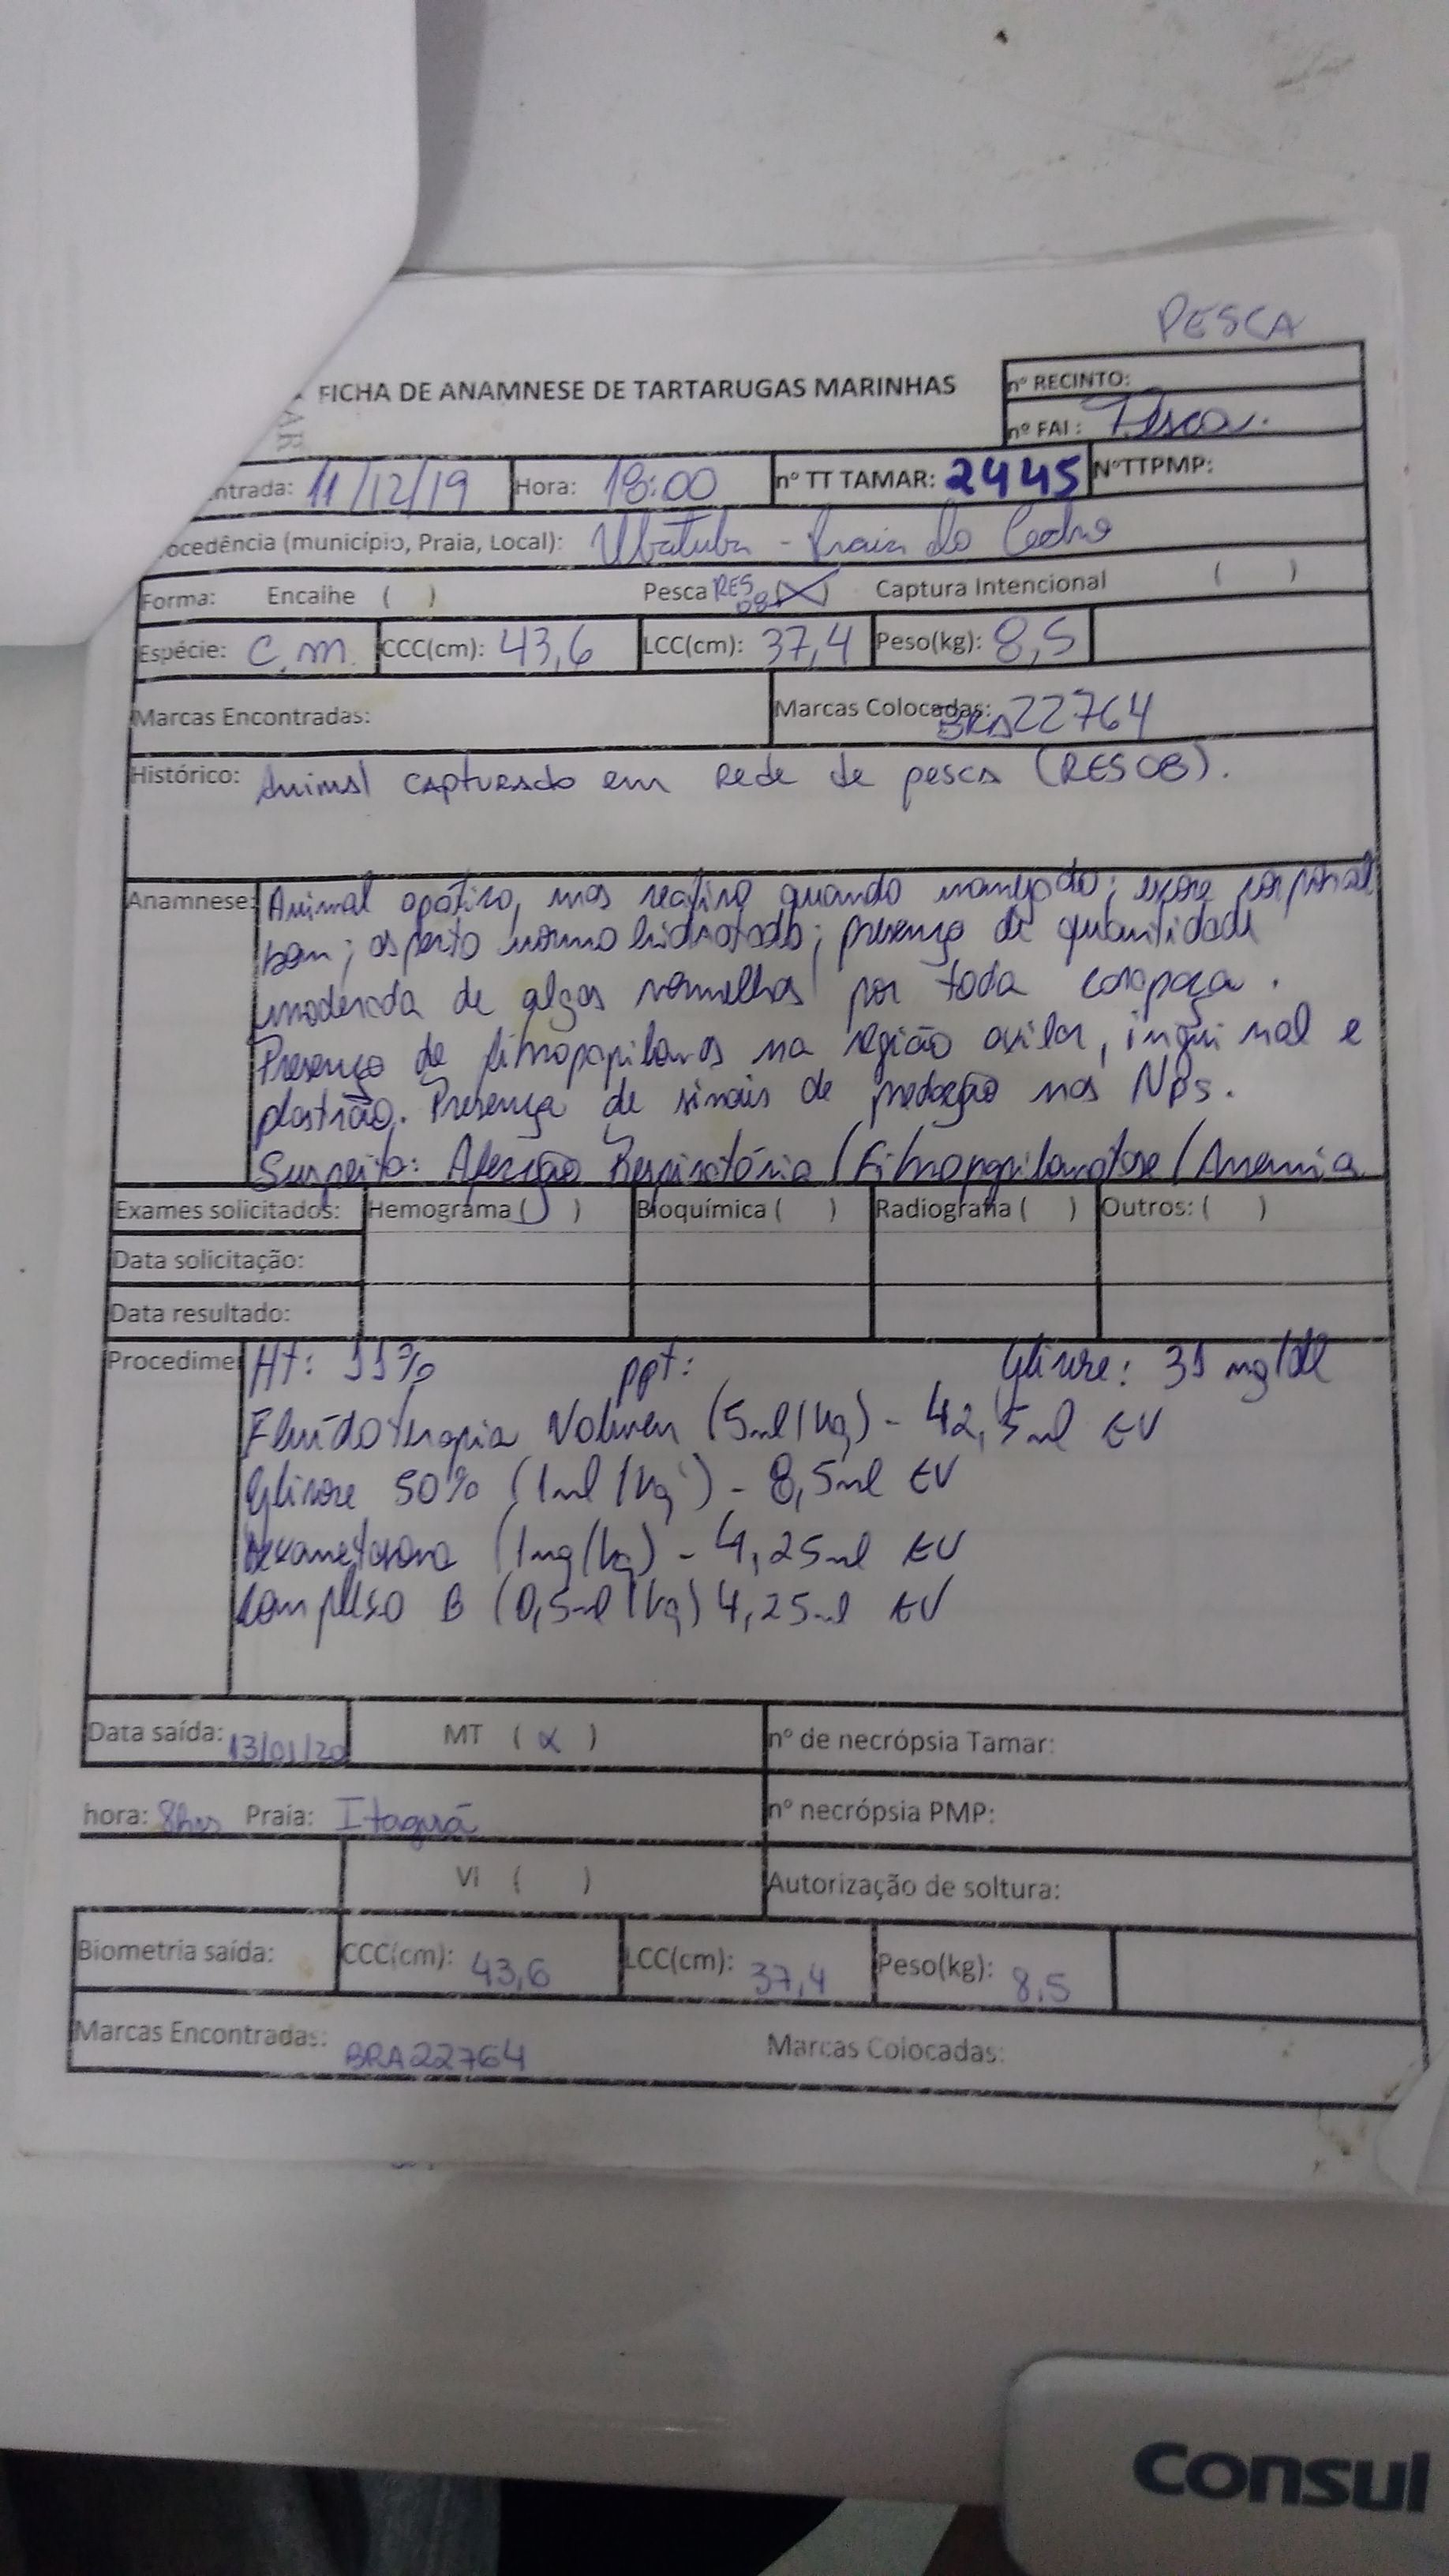 PESCA
FICHA DE ANAMNESE DE TARTARUGAS MARINHAS
nº RECINTO:
nº FAI: Pesca.
AR
ntrada: 11/12/19 Hora: 18:00 nº TT TAMAR: 2445 NºTTPMP:
ocedência (município, Praia, Local): Ubatuba - Praia do Cedro
Forma: Encalhe ( ) Pesca RES 08 (X) Captura Intencional ( )
Espécie: C.m. CCC(cm): 43,6 LCC(cm): 37,4 Peso(kg): 8,5
Marcas Encontradas: Marcas Colocadas: BRA22764
Histórico: Animal capturado em rede de pesca (RES08).
Anamnese: Animal apático, mas reativo quando manejado; escore corporal
bom; aspecto normohidratado; presença de quantidade
moderada de algas vermelhas por toda carapaça.
Presença de fibropapilomas na região axilar, inguinal e
plastrão. Presença de sinais de predação nos Nps.
Suspeita: Afecção Respiratória / Fibropapilomatose / Anemia
Exames solicitados: Hemograma ( ) Bioquímica ( ) Radiografia ( ) Outros: ( )
Data solicitação:
Data resultado:
Procedime Ht: ppt: Glicose: mg/dl
Fluidoterapia Voluven (5ml/kg) - 42,5ml EV
Glicose 50% (1ml/kg) - 8,5ml EV
Dexametasona (1mg/kg) - 4,25ml EV
Complexo B (0,5ml/kg) 4,25ml EV
Data saída: 13/01/20 MT (x) nº de necrópsia Tamar:
hora: 8hrs Praia: Itaguá nº necrópsia PMP:
VI ( ) Autorização de soltura:
Biometria saída: CCC(cm): 43,6 LCC(cm): 37,4 Peso(kg): 8,5
Marcas Encontradas: BRA22764 Marcas Colocadas:
Consul